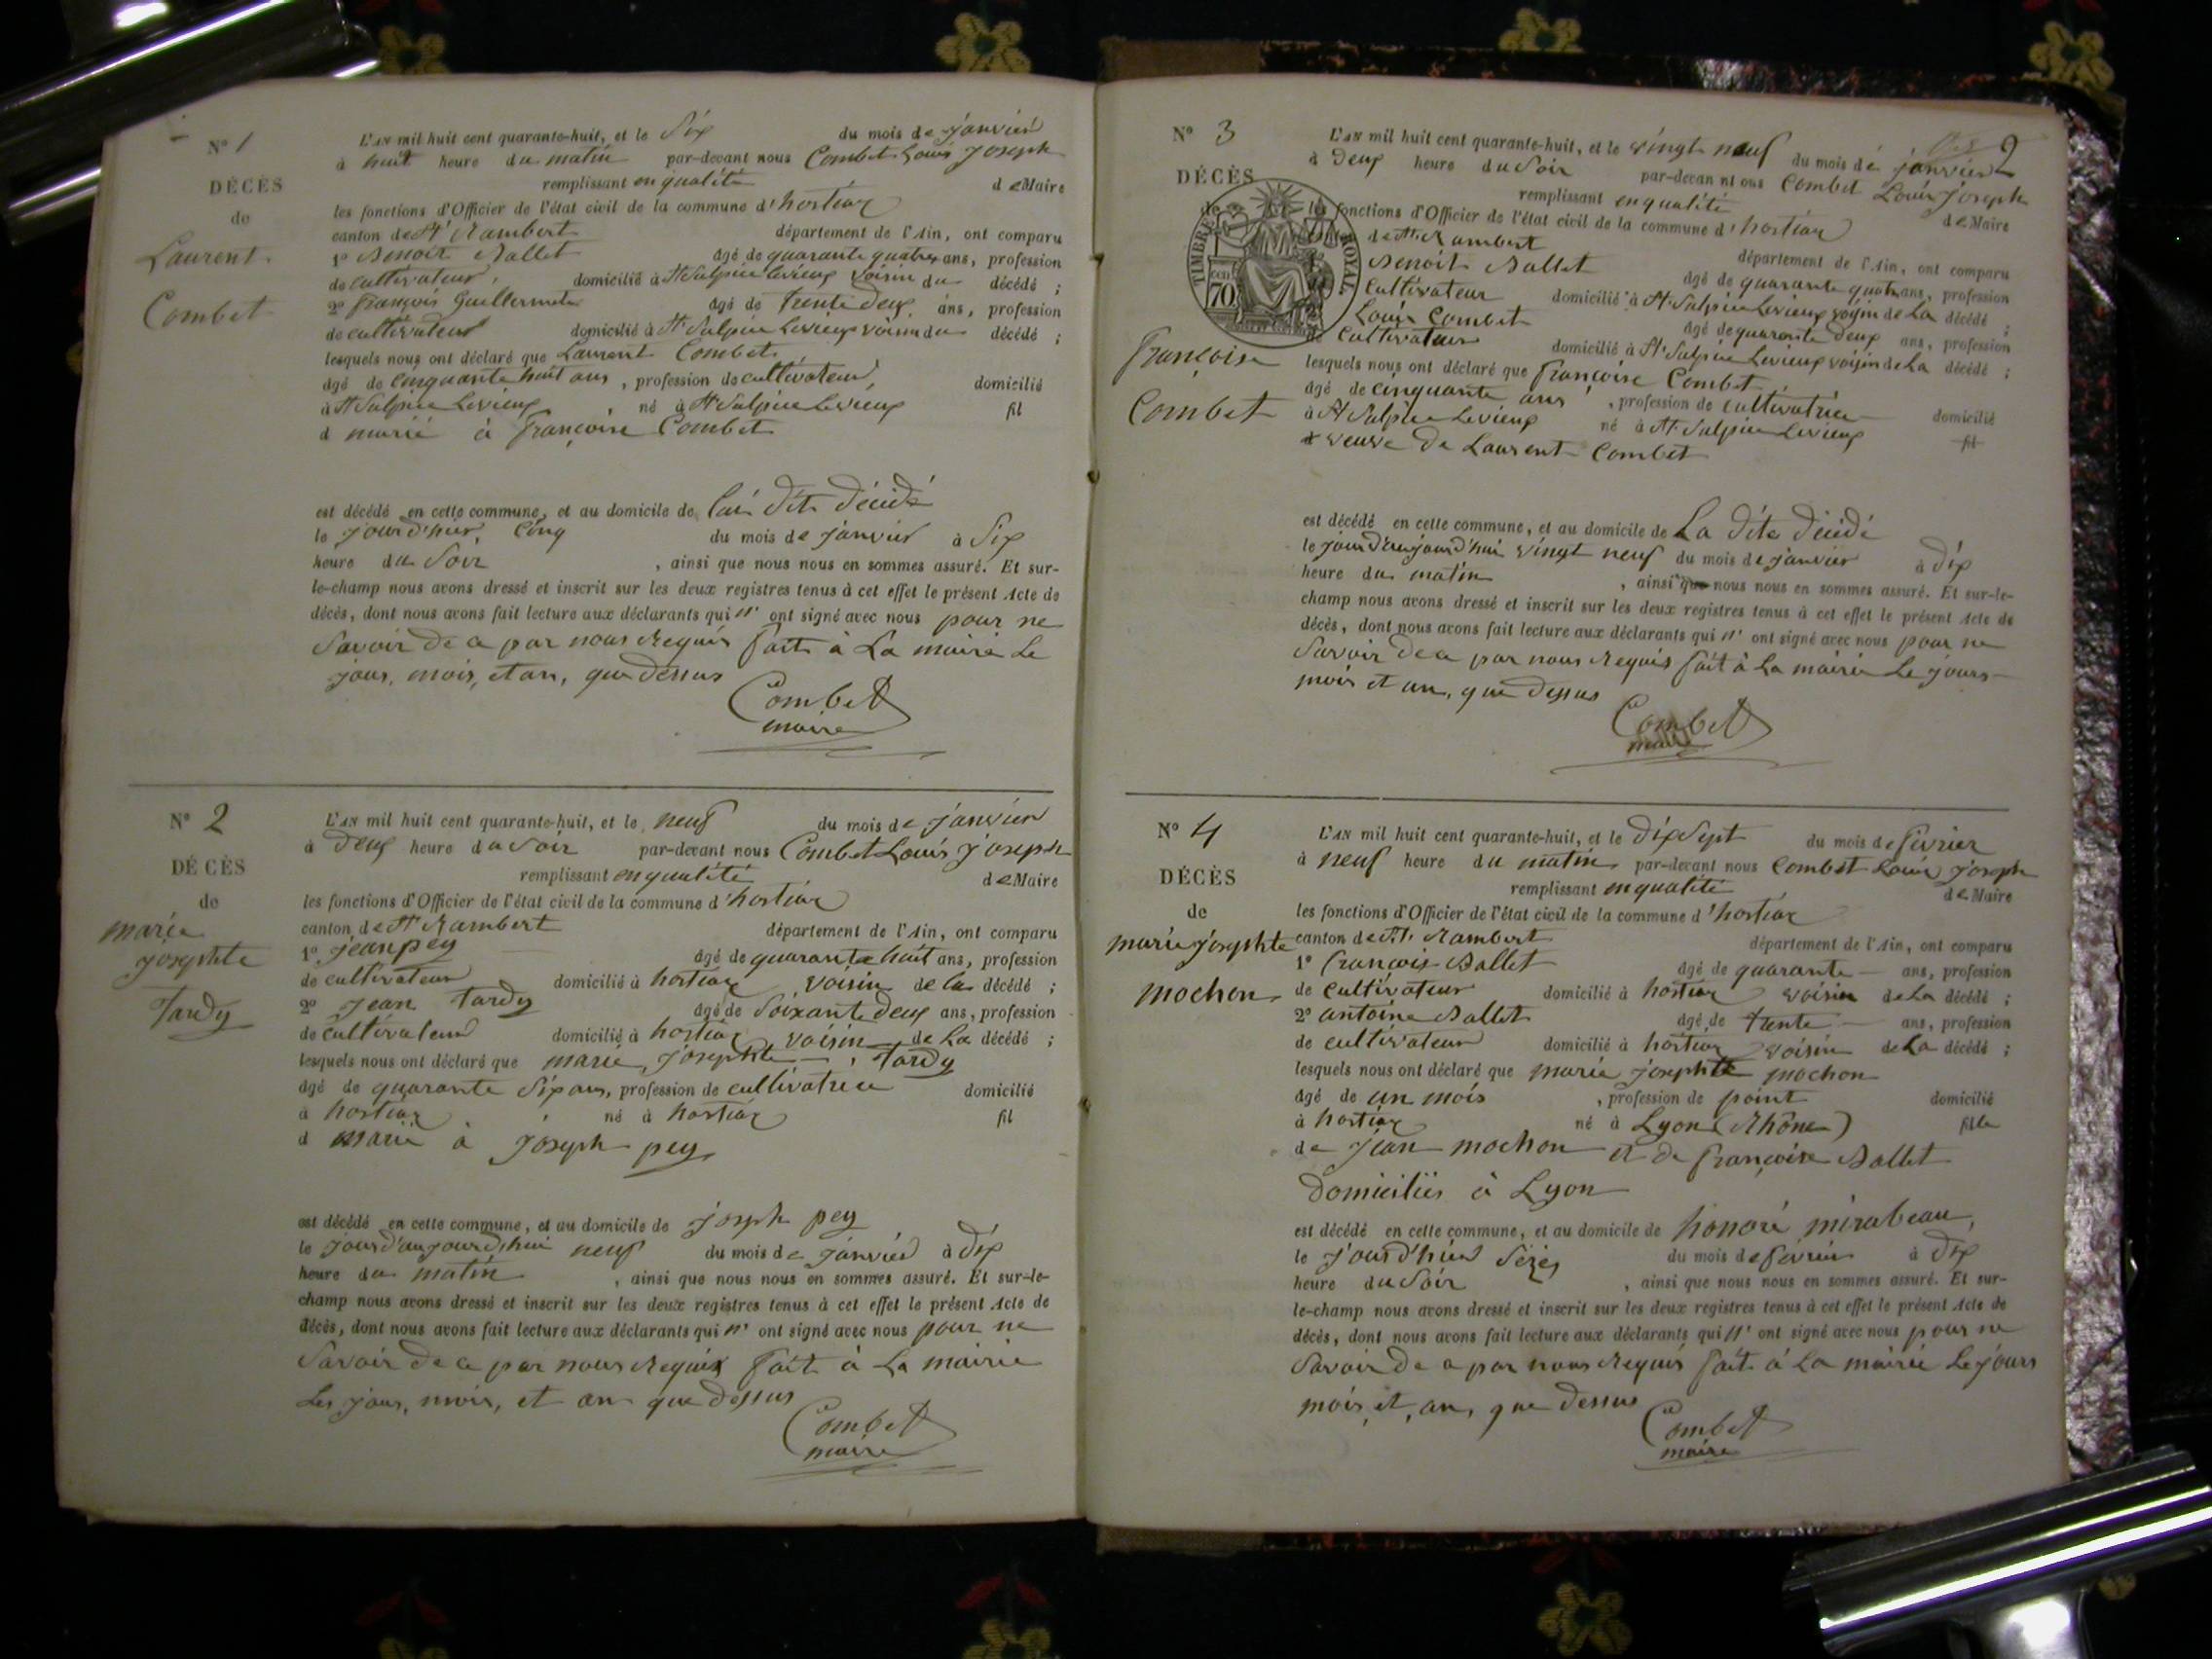 N° 1
DÉCÈS
de
Laurent
Combet
L'AN mil huit cent quarante-huit, et le Six du mois de janvier
à huit heure du matin par-devant nous Combet Louis Joseph
remplissant en qualité de Maire
les fonctions d'Officier de l'état civil de la commune d'hostiaz
canton de St Rambert département de l'Ain, ont comparu
1° Benoit Ballet âgé de quarante quatre ans, profession
de cultivateur, domicilié à St Sulpice Levieux voisin du décédé ;
2° françois Guillermet âgé de trente deux ans, profession
de cultivateur domicilié à St Sulpice Levieux voisin du décédé ;
lesquels nous ont déclaré que Laurent Combet
âgé de cinquante huit ans, profession de cultivateur, domicilié
à St Sulpice Levieux, né à St Sulpice Levieux fil
d marié à françoise Combet
est décédé en cette commune, et au domicile de lui dit décédé
le jour d'hier cinq du mois de janvier à Six
heure du Soir, ainsi que nous nous en sommes assuré. Et sur-
le-champ nous avons dressé et inscrit sur les deux registres tenus à cet effet le présent Acte de
décès, dont nous avons fait lecture aux déclarants qui n' ont signé avec nous pour ne
Savoir de ce par nous Requis fait à La mairie Le
jour, mois, et an, que dessus
Combet
maire
N° 2
DÉCÈS
de
marie
josephte
Tardy
L'AN mil huit cent quarante-huit, et le neuf du mois de janvier
à Deux heure du Soir par-devant nous Combet Louis Joseph
remplissant en qualité de Maire
les fonctions d'Officier de l'état civil de la commune d'hostiaz
canton de St Rambert département de l'Ain, ont comparu
1° Jean pey âgé de quarante huit ans, profession
de cultivateur domicilié à hostiaz voisin de la décédé ;
2° Jean tardy âgé de Soixante deux ans, profession
de cultivateur domicilié à hostiaz voisin de La décédé ;
lesquels nous ont déclaré que marie josephte tardy
âgé de quarante Six ans, profession de cultivatrice domicilié
à hostiaz né à hostiaz fil
d marié à Joseph pey
est décédé en cette commune, et au domicile de joseph pey
le jour d'aujourd'hui neuf du mois de janvier à dix
heure du matin, ainsi que nous nous en sommes assuré. Et sur-le-
champ nous avons dressé et inscrit sur les deux registres tenus à cet effet le présent Acte de
décès, dont nous avons fait lecture aux déclarants qui n' ont signé avec nous pour ne
Savoir de ce par nous Requis fait à La mairie
Les jour, mois, et an que dessus
Combet
maire
2
N° 3
DÉCÈS
de
TIMBRE ROYAL
70
françoise
Combet
L'AN mil huit cent quarante-huit, et le vingt neuf du mois de janvier
à Deux heure du Soir par-devan nt ous Combet Louis Joseph
remplissant en qualité de Maire
les fonctions d'Officier de l'état civil de la commune d'hostiaz
de St Rambert département de l'Ain, ont comparu
Benoit Ballet âgé de quarante quatre ans, profession
Cultivateur domicilié à St Sulpice Levieux voisin de La décédé ;
Louis Combet âgé de quarante deux ans, profession
de Cultivateur domicilié à St Sulpice Levieux voisin de La décédé ;
lesquels nous ont déclaré que françoise Combet
âgé de cinquante ans, profession de cultivatrice domicilié
à St Sulpice Levieux né à St Sulpice Levieux fil
veuve de Laurent Combet
est décédé en cette commune, et au domicile de La dite décédé
le jour d'aujourd'hui vingt neuf du mois de janvier à dix
heure du matin, ainsi que nous nous en sommes assuré. Et sur-le-
champ nous avons dressé et inscrit sur les deux registres tenus à cet effet le présent Acte de
décès, dont nous avons fait lecture aux déclarants qui n' ont signé avec nous pour ne
Savoir de ce par nous Requis fait à La mairie Le jours
mois et an, que dessus
Combet
maire
N° 4
DÉCÈS
de
marie josephte
mochon
L'AN mil huit cent quarante-huit, et le dix Sept du mois de février
à neuf heure du matin par-devant nous Combet Louis Joseph
remplissant en qualité de Maire
les fonctions d'Officier de l'état civil de la commune d'hostiaz
canton de St Rambert département de l'Ain, ont comparu
1° françois Ballet âgé de quarante ans, profession
de cultivateur domicilié à hostiaz voisin de La décédé ;
2° antoine Ballet âgé de trente ans, profession
de cultivateur domicilié à hostiaz voisin de La décédé ;
lesquels nous ont déclaré que marie josephte mochon
âgé de un mois, profession de point domicilié
à hostiaz né à Lyon (Rhône) fille
de Jean mochon et de françoise Ballet
Domiciliés à Lyon
est décédé en cette commune, et au domicile de honoré mirabeau,
le jour d'hier Seize du mois de février à Dix
heure du Soir, ainsi que nous nous en sommes assuré. Et sur-
le-champ nous avons dressé et inscrit sur les deux registres tenus à cet effet le présent Acte de
décès, dont nous avons fait lecture aux déclarants qui n' ont signé avec nous pour ne
Savoir de ce par nous Requis fait à La mairie Le jours
mois, et, an, que dessus
Combet
maire